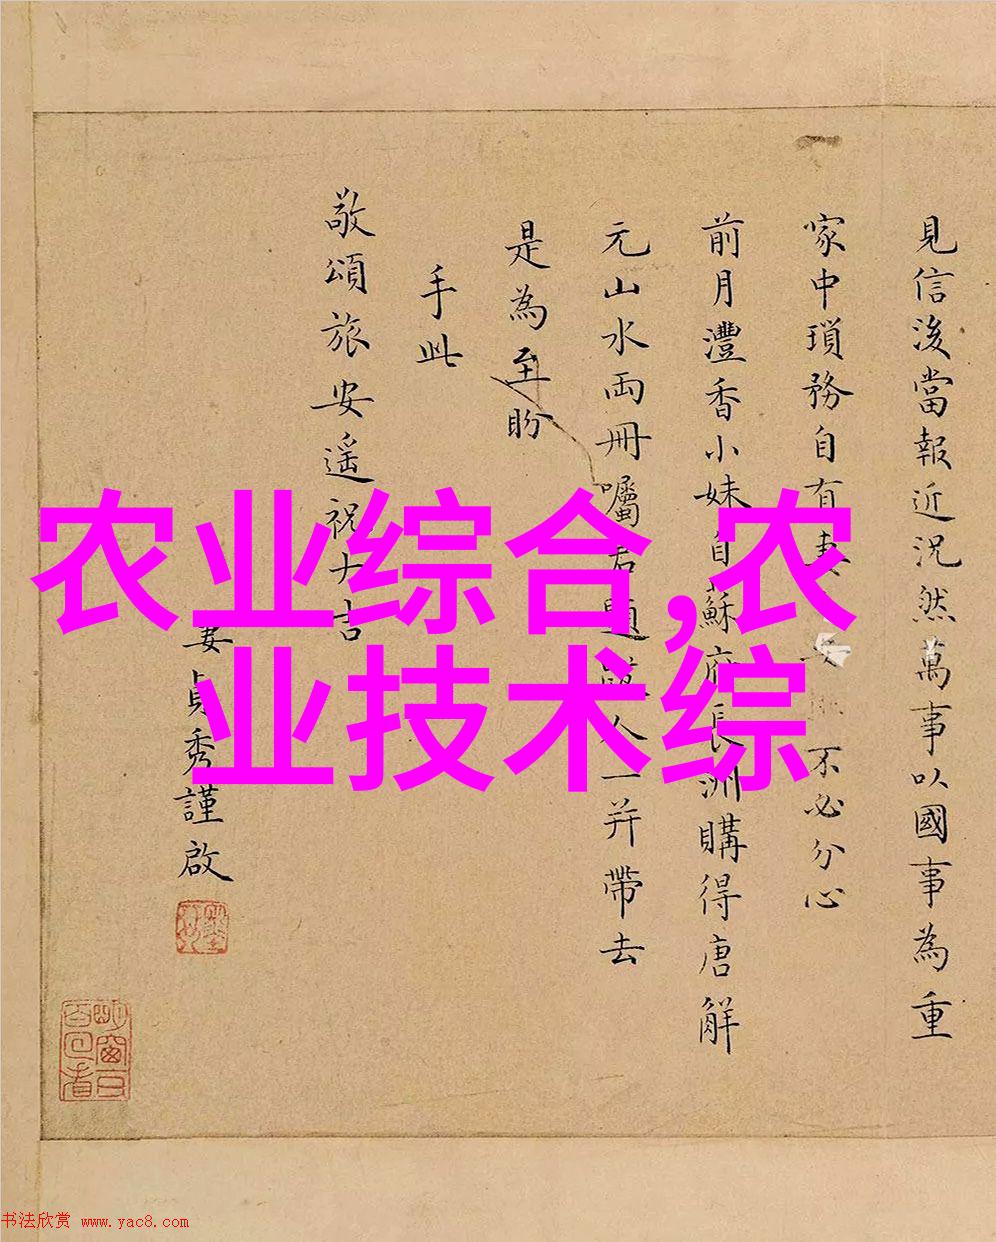 見信後當報近況然萬事以國事為重
家中瑣務自有妻 不必分心
前月灃香小妹自蘇府長洲購得唐解
元山水兩冊囑君題 人一并帶去
是為至盼
手此
敬頌旅安遥祝大吉
妻貞秀謹啟
农业综合,农
业技术综
书法欣赏 www.yac8.com